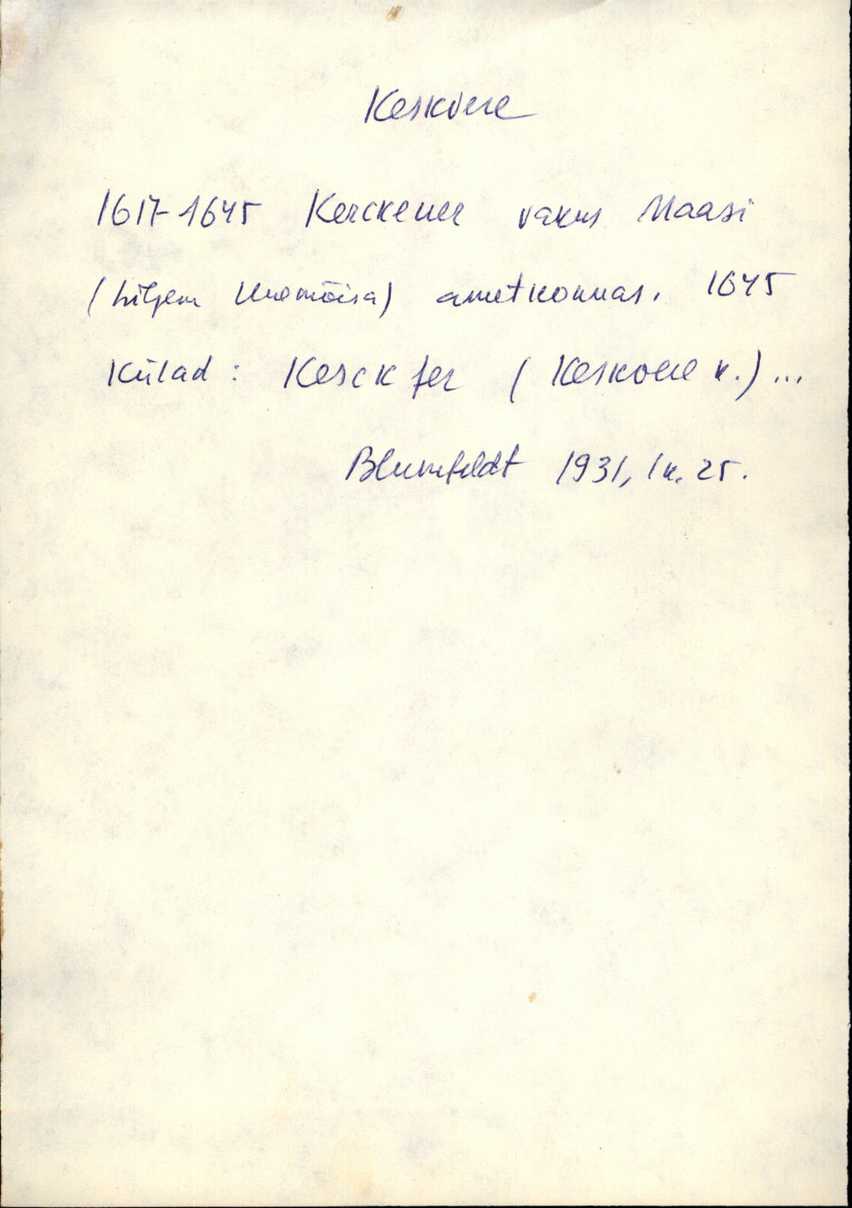 Keskvere
1617-1645 Kerckeuer vakus Maasi
(hiljem Uuemõisa) ametkonnas. 1645
Külad: Kesckfer (Keskvere k.)...
Blumfeldt 1931, lk. 25.